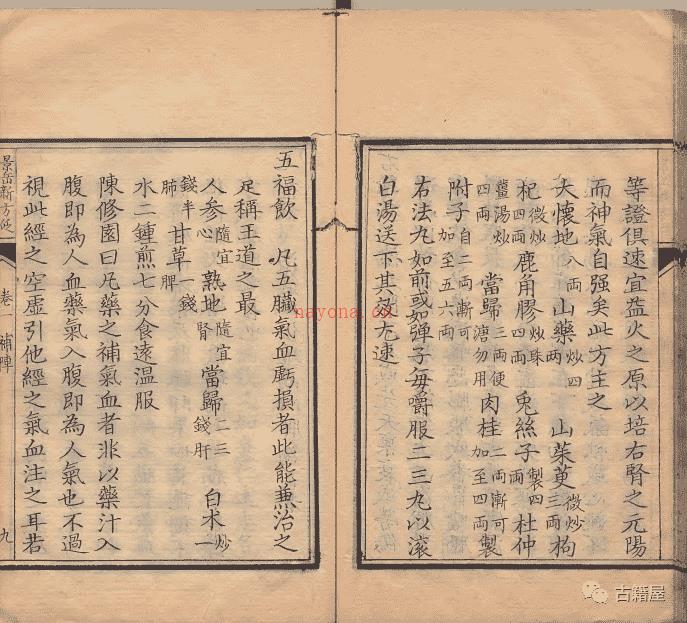 等證俱速宜益火之原以培右腎之元陽
而神氣自强矣此方主之
大懷地八兩山藥炒四兩山茱萸微炒三兩枸
杞微炒四兩鹿角膠炒珠四兩兎絲子製四兩杜仲
薑湯炒四兩當歸三兩便溏勿用肉桂二兩漸可加至四兩製
附子自二兩漸可加至五六兩
右法丸如前或如弹子每嚼服二三丸以滾
白湯送下其效尤速
五福飲 凡五臟氣血虧損者此能兼治之
足稱王道之最
人參隨宜心熟地隨宜腎當歸二三錢肝白朮炒一
錢半肺甘草一錢脾
水二鍾煎七分食遠溫服
陳修園曰凡藥之補氣血者非以藥汁入
腹即為人血藥氣入腹即為人氣也不過
視此經之空虛引他經之氣血注之耳若
景岳新方砭 卷一 補陣 九
nayona.cn
古籍屋